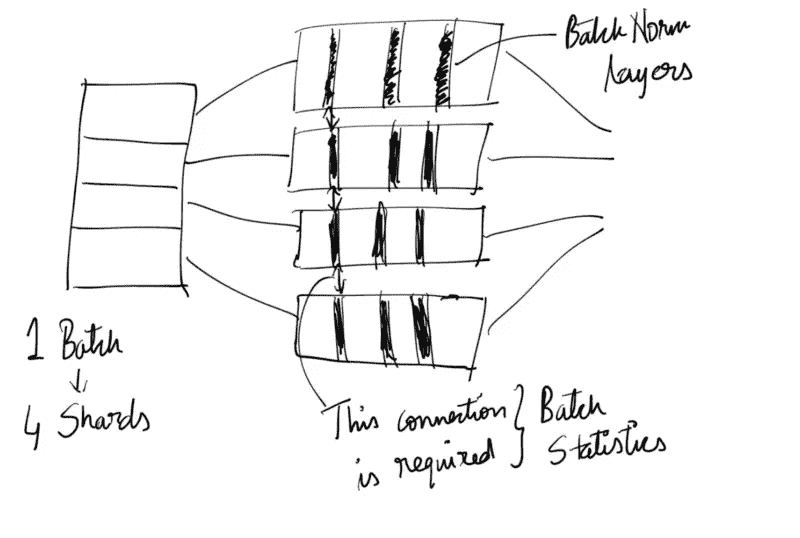 Batch Norm
layers
1 Batch
↓
4 Shards
This connection } Batch
is required } Statistics